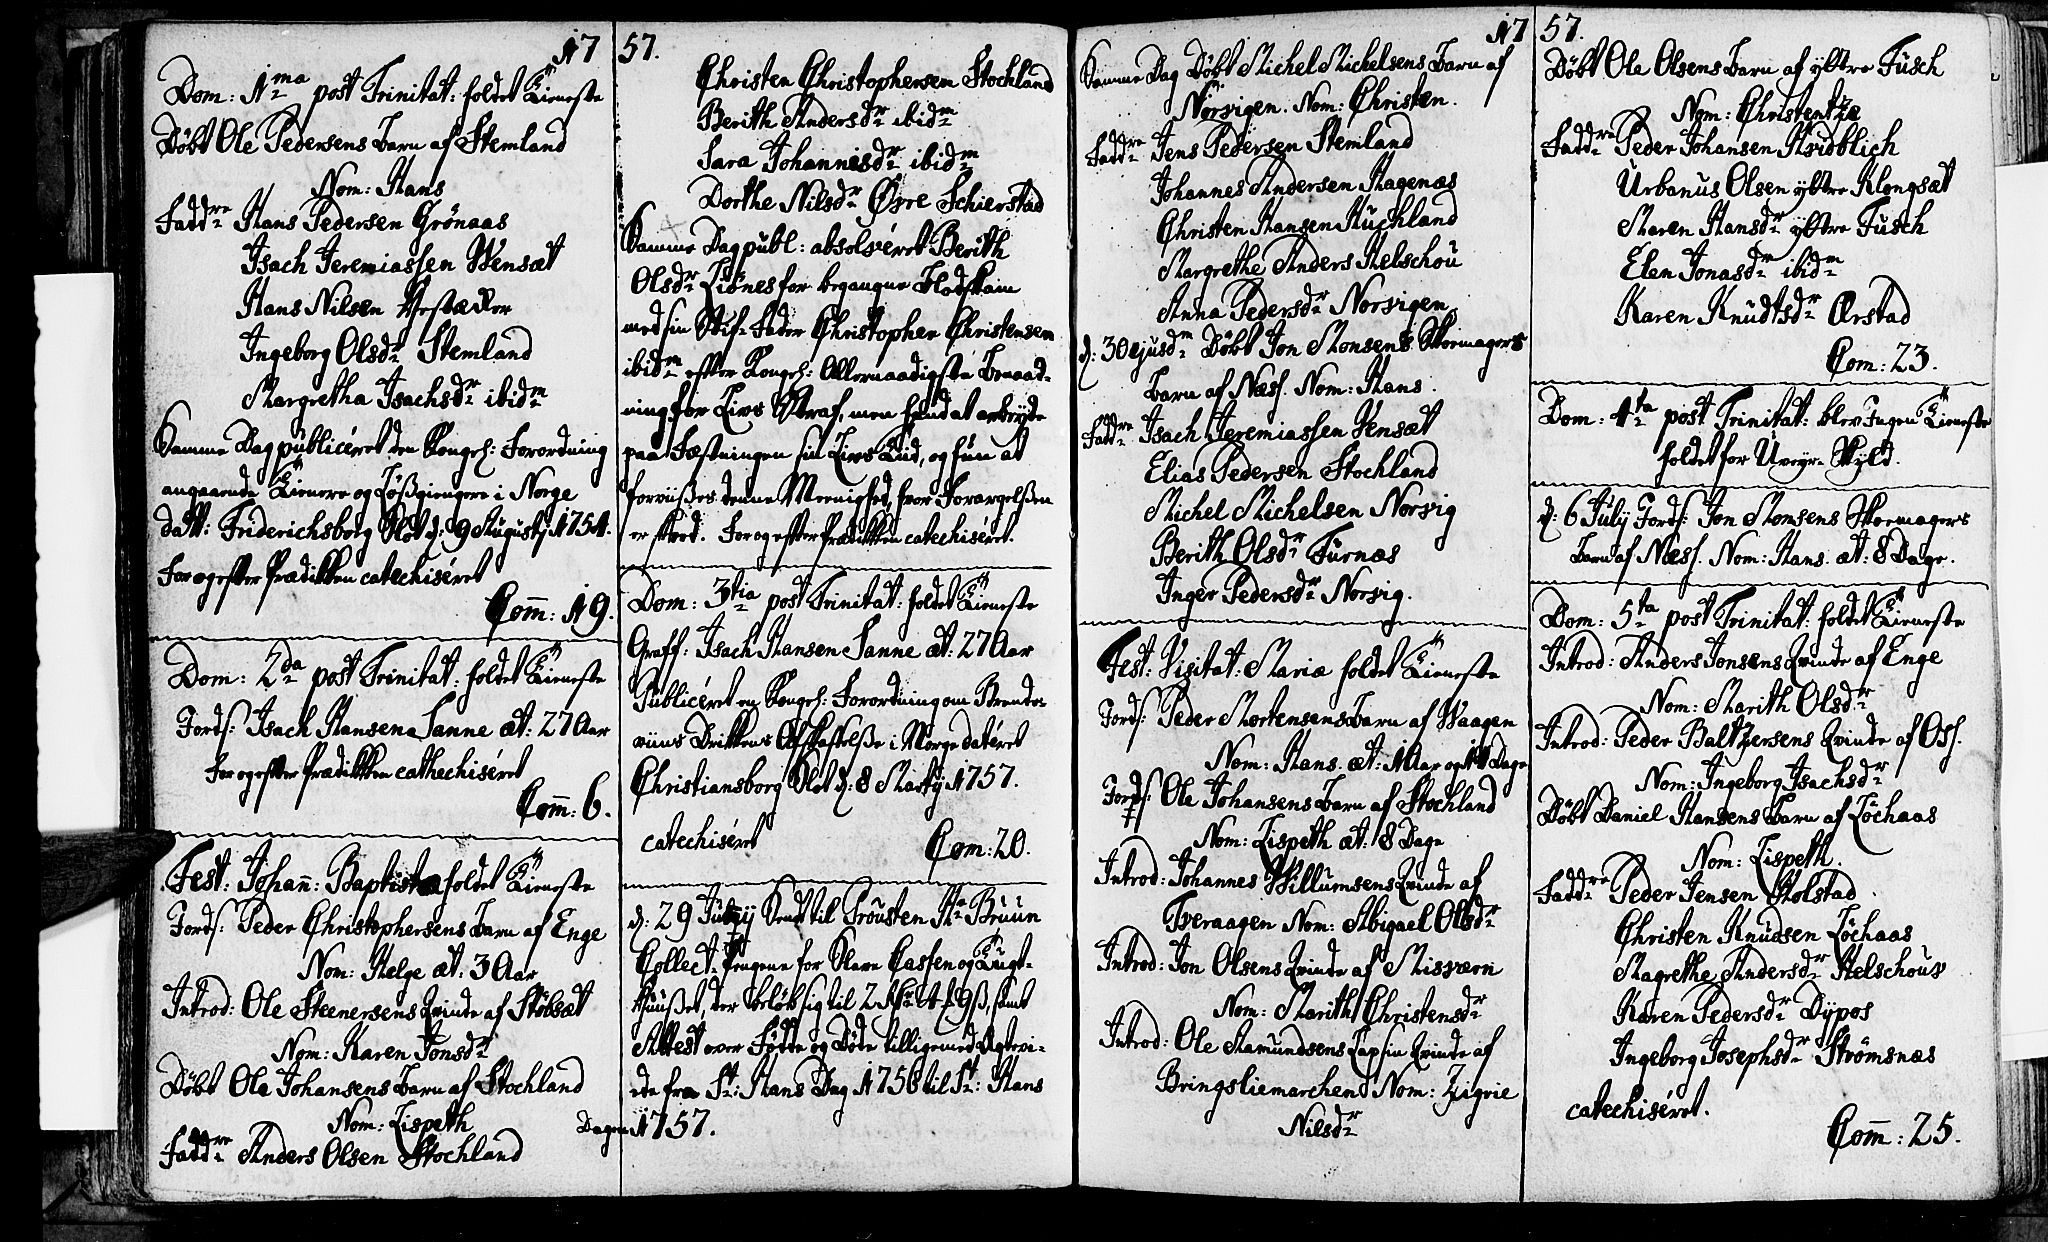 17
Dom: 1ma post Trinitat: holdet Tieneste
Døbt Ole Pedersens Barn af Stemland
Nom: Hans
Fadd:re Hans Pedersen Grönaas
Isach Jeremiassen Wensæt
Hans Nilsen
Ingeborg Olsdr Stemland
Margretha Isachsdr ibidm
Samme Dag publiceret den Kongel: Forordning
angaaende Tienere og Lößgiengere i Norge
datt: Friderichsborg Slot d: 9 Augusti 1754.
For og efter Prædikken catechiséret
Com̄: 19.
Dom: 2da post Trinitat: holdet Tieneste
Jords: Isach Hansen Sanne æt: 27 Aar
For og efter Prædikken cathechiséret
Com̄: 6.
Fest: Johañ: Baptistæ holdet Tieneste
Jords: Peder Christophersens Barn af Enge
Nom: Helge æt: 3 Aar
Introd: Ole Steenersens Qvinde af Stöbsæt
Nom: Karen Jonsdr
Döbt Ole Johansens Barn af Stochland
Nom: Lispeth
Fadd:re Anders Olsen Stochland
57.
Christen Christophersen Stochland
Berith Andersdr ibidm
Sara Johannisdr ibidm
Dorthe Nilsdr Øvre Schierstad
Samme Dag publ: absolvéret Berith
Olsdr Lienes for begangne Blodskam
med sin Stif-Fader Christopher Christensen
ibidm efter Kongel: Allernaadigste Benaad-
ning for Livs Straf, men hand at arbeyde
paa Fæstningen sin Livs Tiid, og hun at
forviises denne Meenighed, hvor Forargelsen
er skeed. For og efter Prædikken catechiséret.
Dom: 3tia post Trinitat: holdet Tieneste
Graff: Isach Hansen Sanne æt: 27 Aar
Publicéret en Kongel: Forordning om Brende-
viins Drikkens Afskaffelse i Norge datéret
Christiansborg Slot d: 8 Martij 1757.
catechiséret
Com: 20.
d: 29 July Sendt til Provsten Hr Bruun
Collect-Pengene for Slave Cassen og Tugt-
Huuset, der beløb sig til 2 Rdr 4 9ß, samt
Attest over Födte og Döde tilligemed Ægtevi-
ede fra St: Hans Dag 1756 til St: Hans
Dagen 1757.
17
Samme Dag Döbt Michel Michelsens Barn af
Norvigen. Nom: Christen.
Fadd:re Jens Pedersen Stemland
Johannes Andersen Hagenæs
Christen Hansen Huchland
Margrethe Anders Helschou
Anna Pedersdr Norvigen
d: 30 ejusdm Döbt Jon Monsens Skoemagers
Barn af Næss. Nom: Hans.
Fadd:re Isach Jeremiassen Vensæt
Elias Pedersen Stochland
Michel Michelsen Norvig
Berith Olsdr Furnæs
Inger Pedersdr Norvig.
Fest: Visitat: Mariæ holdet Tieneste
Jords: Peder Mortensens Barn af Waagen
Nom: Hans. æt: 1 Aar og 14 Dage
Jords: Ole Johansens Barn af Stochland
Nom: Lispeth æt: 8 Dage
Introd: Johannes Willumsens Qvinde af
Tveraagen Nom: Abigael Olsdr
Introd: Jon Olsens Qvinde af Misværn
Nom: Marith Christensdr
Introd: Ole Aamundsens Lapfin Qvinde af
Bringsliemarchen Nom: Zigrie
Nilsdr
57.
Döbt Ole Olsens Barn af yttre Fusch
Nom: Christentze
Fadd:re Peder Johansen Hvidblich
Urbanus Olsen yttre Klengsæt
Maren Hansdr yttre Fusch
Elen Jonasdr ibidm
Karen Knudtsdr Ørstad
Com: 23.
Dom: 4ta post Trinitat: blev Ingen Tieneste
holdet for Uveyrs Skyld.
d: 6 July Jords: Jon Monsens Skoemagers
Barn af Næss. Nom: Hans. æt: 8 Dage.
Dom: 5ta post Trinitat: holdet Tieneste
Introd: Anders Jonsens Qvinde af Enge
Nom: Marith Olsdr
Introd: Peder Baltzersens Qvinde af Oss.
Nom: Ingeborg Isachsdr
Döbt Daniel Hansens Barn af Löchaas
Nom: Lispeth.
Fadd:re Peder Jensen Holstad
Christen Knudsen Löchaas
Magrethe Andersdr Helschouv
Karen Pedersdr Dypos
Ingeborg Josephsdr Strömsnæs
catechiséret.
Com̄: 25.